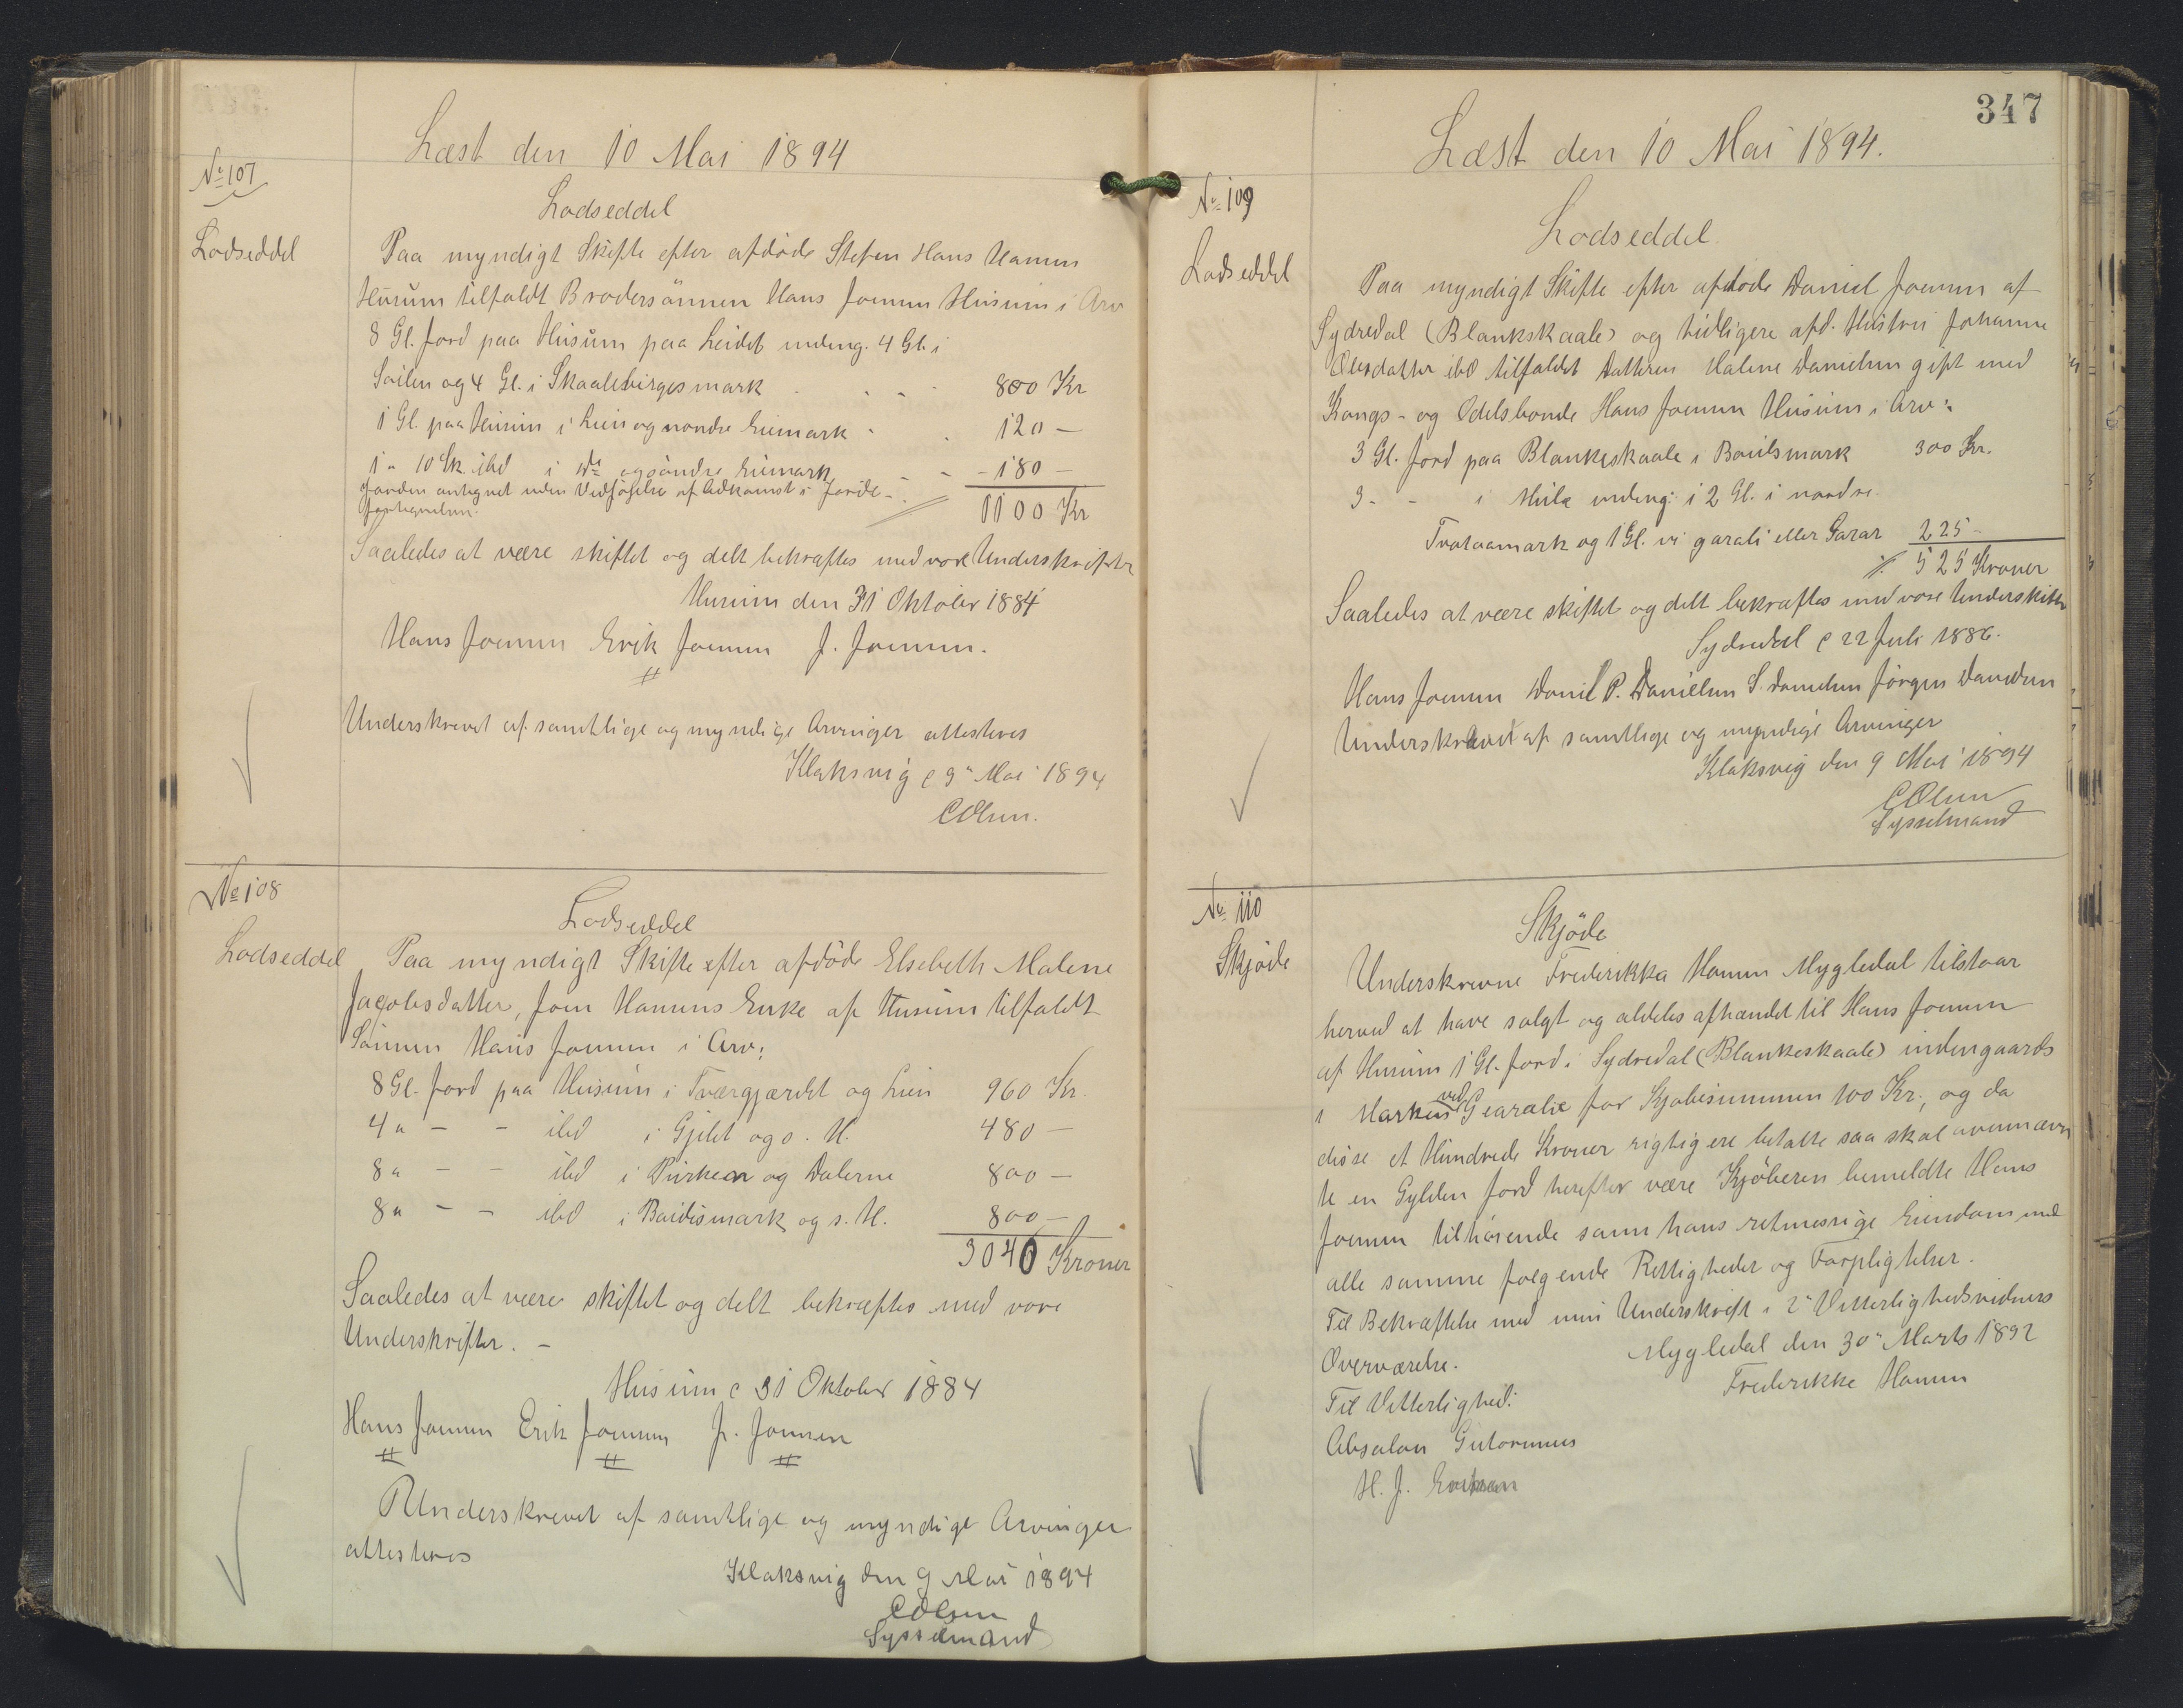 Læst den 10 Mai 1894
No 107
Lodseddel
Lodseddel
Paa myndigt Skifte efter afdöde Stefen Hans Hansen
Husum tilfaldt Brodersönnen Hans Joensen Husum i Arv
8 Gl. Jord paa Husum paa Leidet indeng. 4 Gl. i
og 4 Gl. i Skaalebirgesmark 800 Kr
1 Gl. paa Husum i Lien og nondre Eiimark 120 —
1 " 10 Sk. ibd i do og söndre Eiimark 180 —
Jorden antegnet uden Vedföielse af Adkomst i Jorde-
fortegnelsen.
1100 Kr
Saaledes at være skiftet og delt bekræftes med vore Underskrifter
Husum den 31 Oktober 1884
Hans Joensen Erik Joensen J. Joensen.
Underskrevet af samtlige og myndige Arvinger attesteres
Klaksvig d 9" Mai 1894
C Olsen.
No 108
Lodseddel
Lodseddel
Paa myndigt Skifte efter afdöde Elsebeth Malene
Jacobsdatter, Joen Hansens Enke af Husum tilfaldt
Sönnen Hans Joensen i Arv:
8 Gl. Jord paa Husum i Tværgjærdet og Lien 960 Kr.
4 " — — ibd i Gjilet og o. H. 480 —
8 " — — ibd i og Dalerne 800 —
8 " — — ibd i mark og s. H. 800 —
3040 Kroner
Saaledes at være skiftet og delt bekræftes med vore
Underskrifter. —
Husum d 31 Oktober 1884
Hans Joensen Erik Joensen J. Joensen
Underskrevet af samtlige og myndige Arvinger
attesteres
Klaksvig den 9 Mai 1894
C Olsen
Sysselmand
347
Læst den 10 Mai 1894.
No 109
Lodseddel
Lodseddel
Paa myndigt Skifte efter afdöde Daniel Joensen af
Sydredal (Blankskaale) og tidligere afd. Hustru Johanne
Olesdatter ibd tilfaldt Datteren Malene Danielsen gift med
Kongs- og Odelsbonde Hans Joensen Husum i Arv:
3 Gl. Jord paa Blankeskaale i Bouilsmark 300 Kr.
3 - - i Mule indeng: i 2 Gl. i nordre
Tvoraamark og 1 Gl. vi garali eller Garar 225 —
525 Kroner
Saaledes at være skiftet og delt bekræftes med vore Underskifter
Sydredal d 22 Juli 1886.
Hans Joensen Daniel P. Danielsen S. Danielsen Jörgen Danielsen
Underskrevet af samtlige og myndige Arvinger
Klaksvig den 9 Mai 1894
C Olsen
Sysselmand
No 110
Skjöde
Skjöde
Underskrevne Frederikka Hansen Mygledal tilstaar
herved at have solgt og aldeles afhændet til Hans Joensen
af Husum 1 Gl. Jord i Sydredal (Blankeskaale) indengaards
i Marken ved Gearalie for Kjöbesummen 100 Kr., og da
disse et Hundrede Kroner rigtig ere betalte saa skal ovennævn
te en Gylden Jord herefter være Kjöberen bemeldte Hans
Joensen tilhörende som hans retmæssige Eiendom med
alle samme fölgende Rettigheder og Forpligtelser.
Til Bekræftelse med min Underskrift i 2 Vitterlighedsvidners
Overværelse.
Mygledal den 30" Marts 1892
Frederikke Hansen
Til Vitterlighed:
Absalon Guttormsen
H. J.